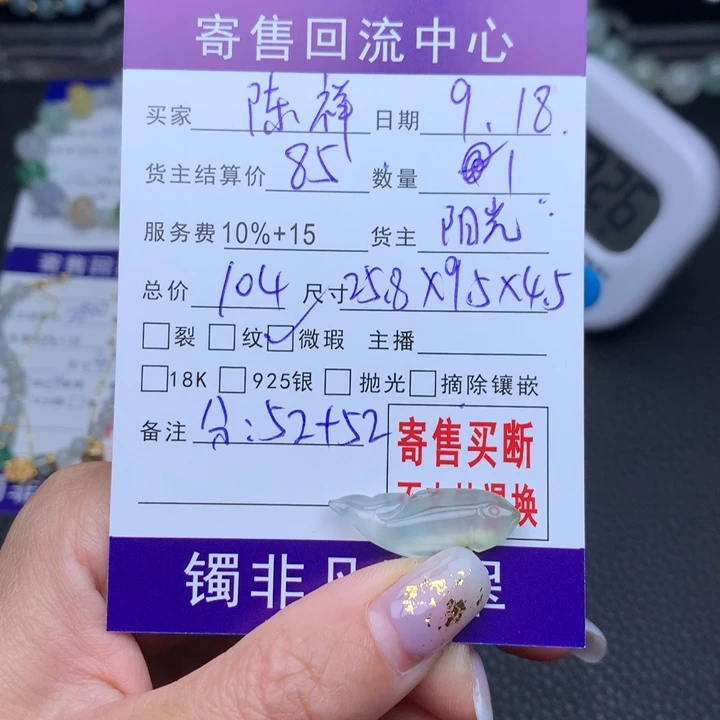 寄售回流中心
买家 陈祥 日期 9.18.
货主结算价 85 数量 1
服务费 10%+15 货主 阳光
总价 104 尺寸 25.8×9.5×4.5
裂 纹 微瑕 主播
18K 925银 抛光 摘除镶嵌
备注 分:52+52
寄售买断
换
镯非凡